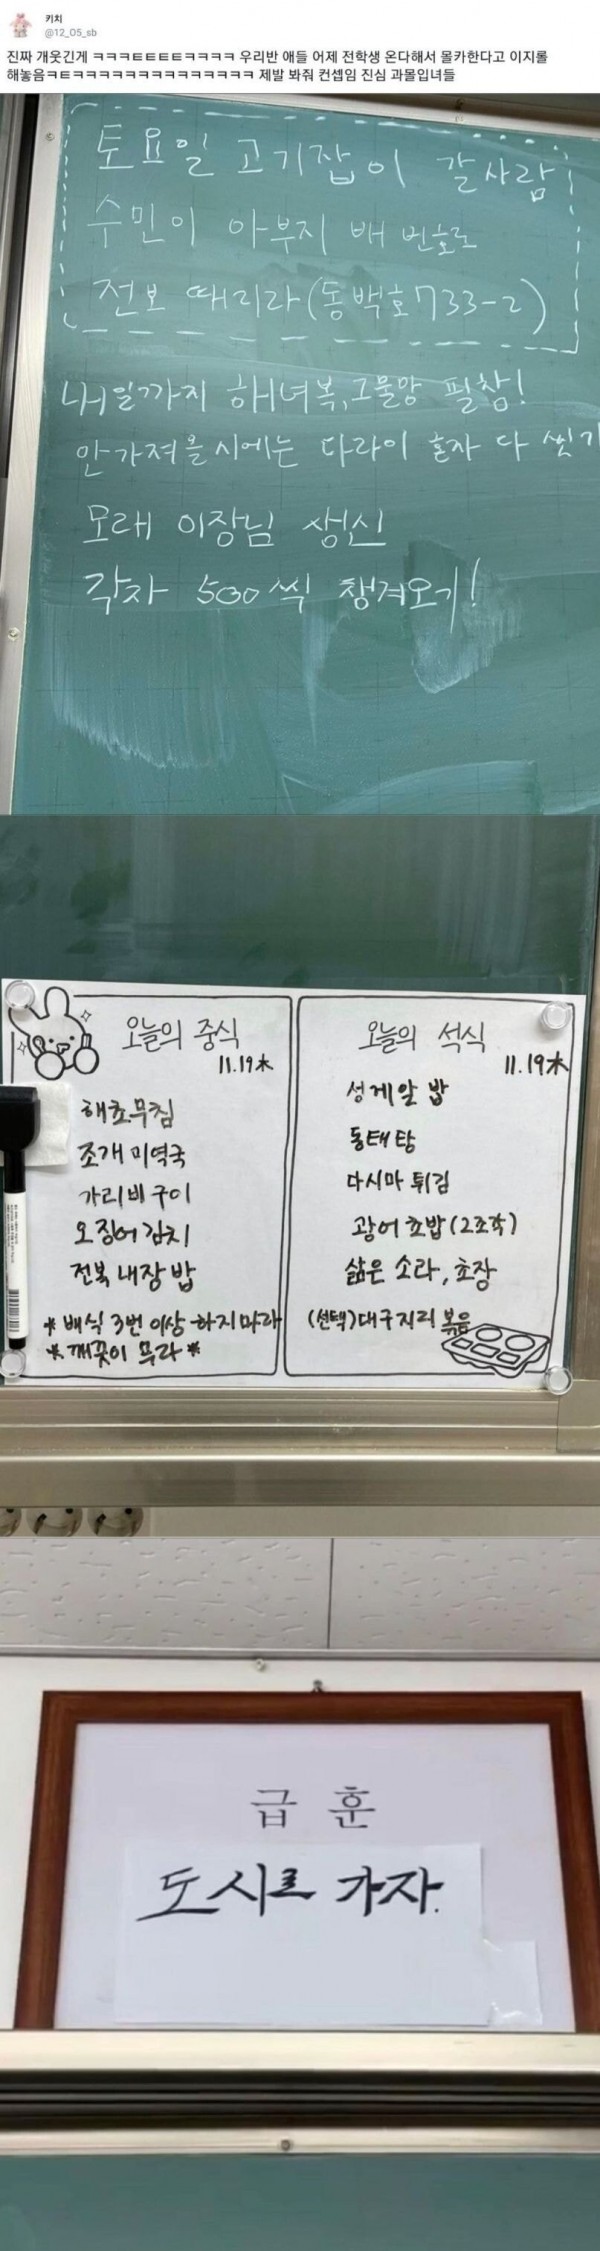 키치
@12_05_sb
진짜 개웃긴게 ㅋㅋㅋㅌㅌㅌㅌㅋㅋㅋㅋ 우리반 애들 어제 전학생 온다해서 몰카한다고 이지롤
해놓음ㅋㅌㅋㅋㅋㅋㅋㅋㅋㅋㅋㅋㅋㅋㅋㅋㅋ 제발 봐줘 컨셉임 진심 과몰입녀들
토요일 고기잡이 갈사람
수민이 아부지 배 번호로
전보 때리라(동백호733-2)
내일까지 해녀복,그물망 필참!
안가져올시에는 다라이 혼자 다 씻기
모레 이장님 생신
각자 500씩 챙겨오기!
오늘의 중식
11.19木
해초무침
조개 미역국
가리비 구이
오징어 김치
전복 내장 밥
*배식 3번 이상 하지마라
*깨끗이 무라*
오늘의 석식
11.19木
성게알 밥
동태탕
다시마 튀김
광어 초밥(2조각)
삶은 소라, 초장
(선택)대구지리 볶음
급훈
도시로 가자.